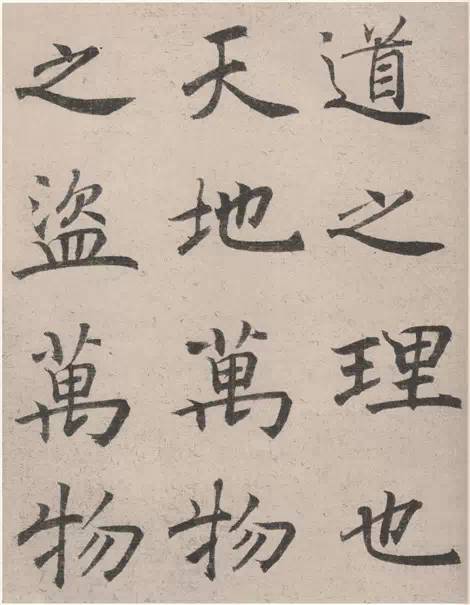 道之理也
天地萬物
之盜萬物